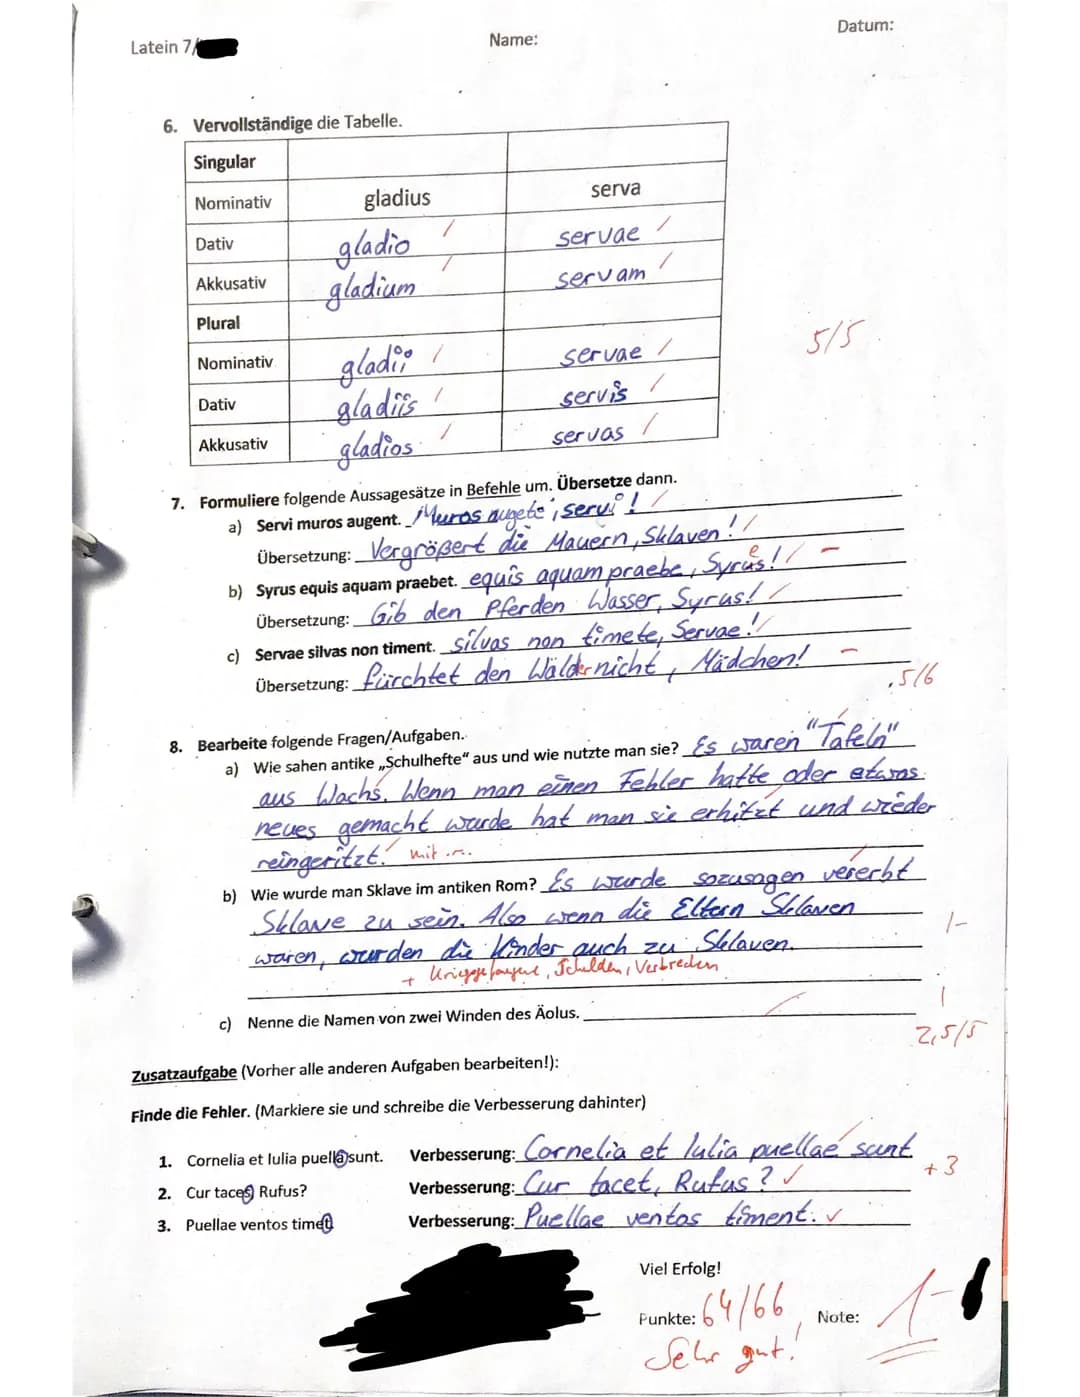 Latein 7/
Name:
Datum:
6. Vervollständige die Tabelle.
Singular
Nominativ gladius serva
Dativ gladio / servae /
Akkusativ gladium / servam /
Plural
5/5
Nominativ gladii / servae /
Dativ gladiis / servis /
Akkusativ gladios / servas /
7. Formuliere folgende Aussagesätze in Befehle um. Übersetze dann.
a) Servi muros augent. Muros augete, servi! /
Übersetzung: Vergrößert die Mauern, Sklaven! /
b) Syrus equis aquam praebet. equis aquam praebe, Syrus! / -
e
Übersetzung: Gib den Pferden Wasser, Syrus! /
c) Servae silvas non timent. silvas non timete, Servae! /
Übersetzung: fürchtet den Wälder nicht, Mädchen! -
5/6
8. Bearbeite folgende Fragen/Aufgaben.
a) Wie sahen antike „Schulhefte“ aus und wie nutzte man sie? Es waren "Tafeln"
aus Wachs. Wenn man einen Fehler hatte oder etwas
neues gemacht wurde hat man sie erhitzt und wieder
reingeritzt. mit ...
b) Wie wurde man Sklave im antiken Rom? Es wurde sozusagen vererbt
Sklave zu sein. Also wenn die Eltern Sklaven
waren, wurden die Kinder auch zu Sklaven.
1-
+ Kriegsgefangene, Schulden, Verbrechen
c) Nenne die Namen von zwei Winden des Äolus.
2,5/5
Zusatzaufgabe (Vorher alle anderen Aufgaben bearbeiten!):
Finde die Fehler. (Markiere sie und schreibe die Verbesserung dahinter)
1. Cornelia et Iulia puella sunt. Verbesserung: Cornelia et Iulia puellae sunt
+3
2. Cur taces Rufus? Verbesserung: Cur tacet, Rufus? ✓
3. Puellae ventos timet Verbesserung: Puellae ventos timent. ✓
Viel Erfolg!
Punkte: 64/66 Note: 1-
Sehr gut!